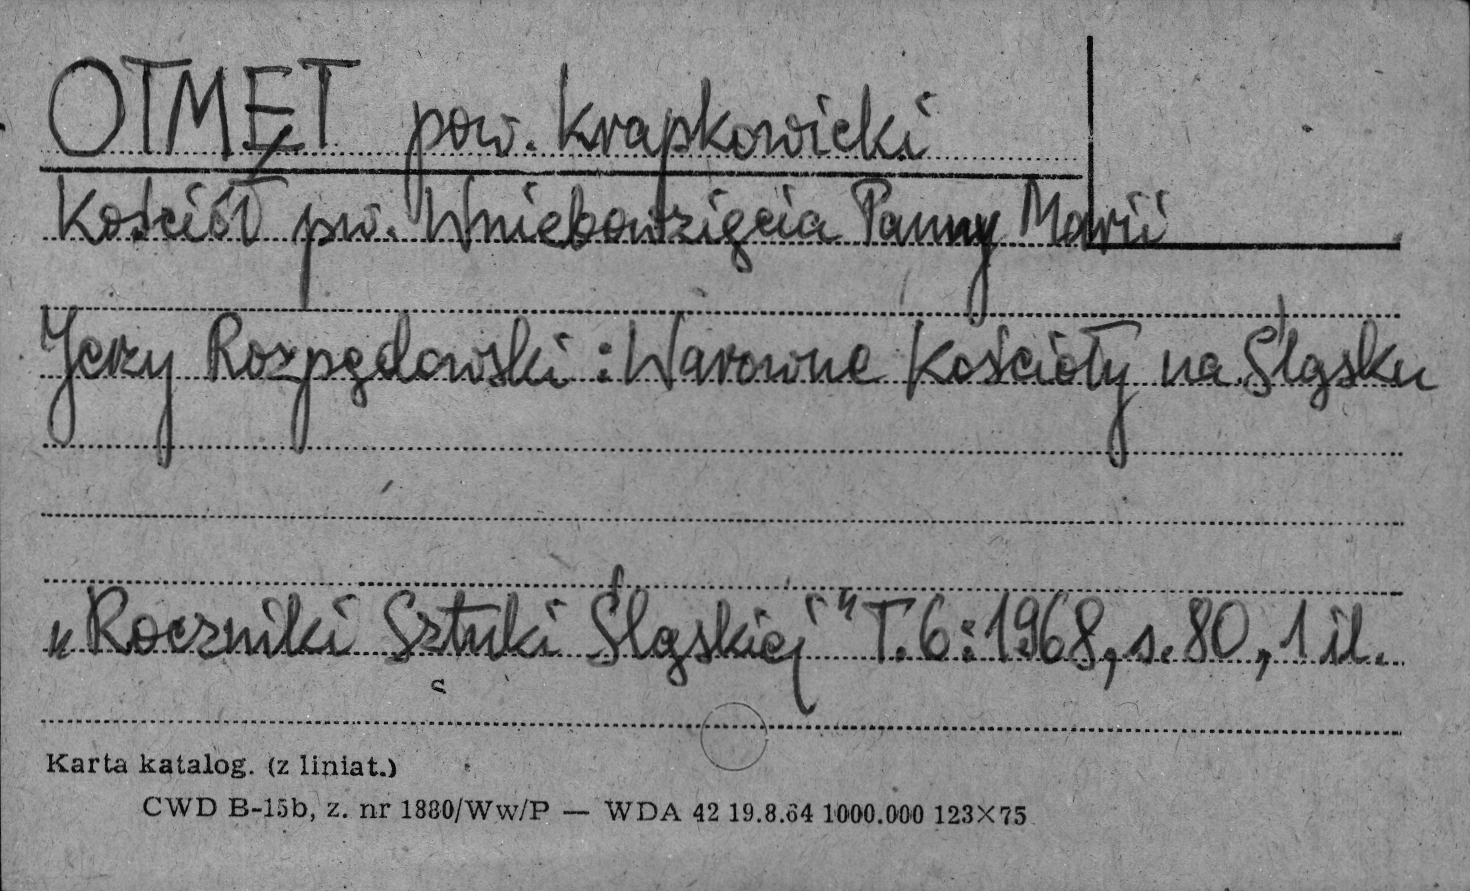 OTMĘT pow. krapkowicki
Kościół pw. Wniebowzięcia Panny Marii
Jerzy Rozpędowski : Warowne kościoły na Śląsku
„Roczniki Sztuki Śląskiej" T. 6 : 1968, s. 80, 1 il.
Karta katalog. (z liniat.)
CWD B-15b, z. nr 1880/Ww/P — WDA 42 19.8.64 1000.000 123×75